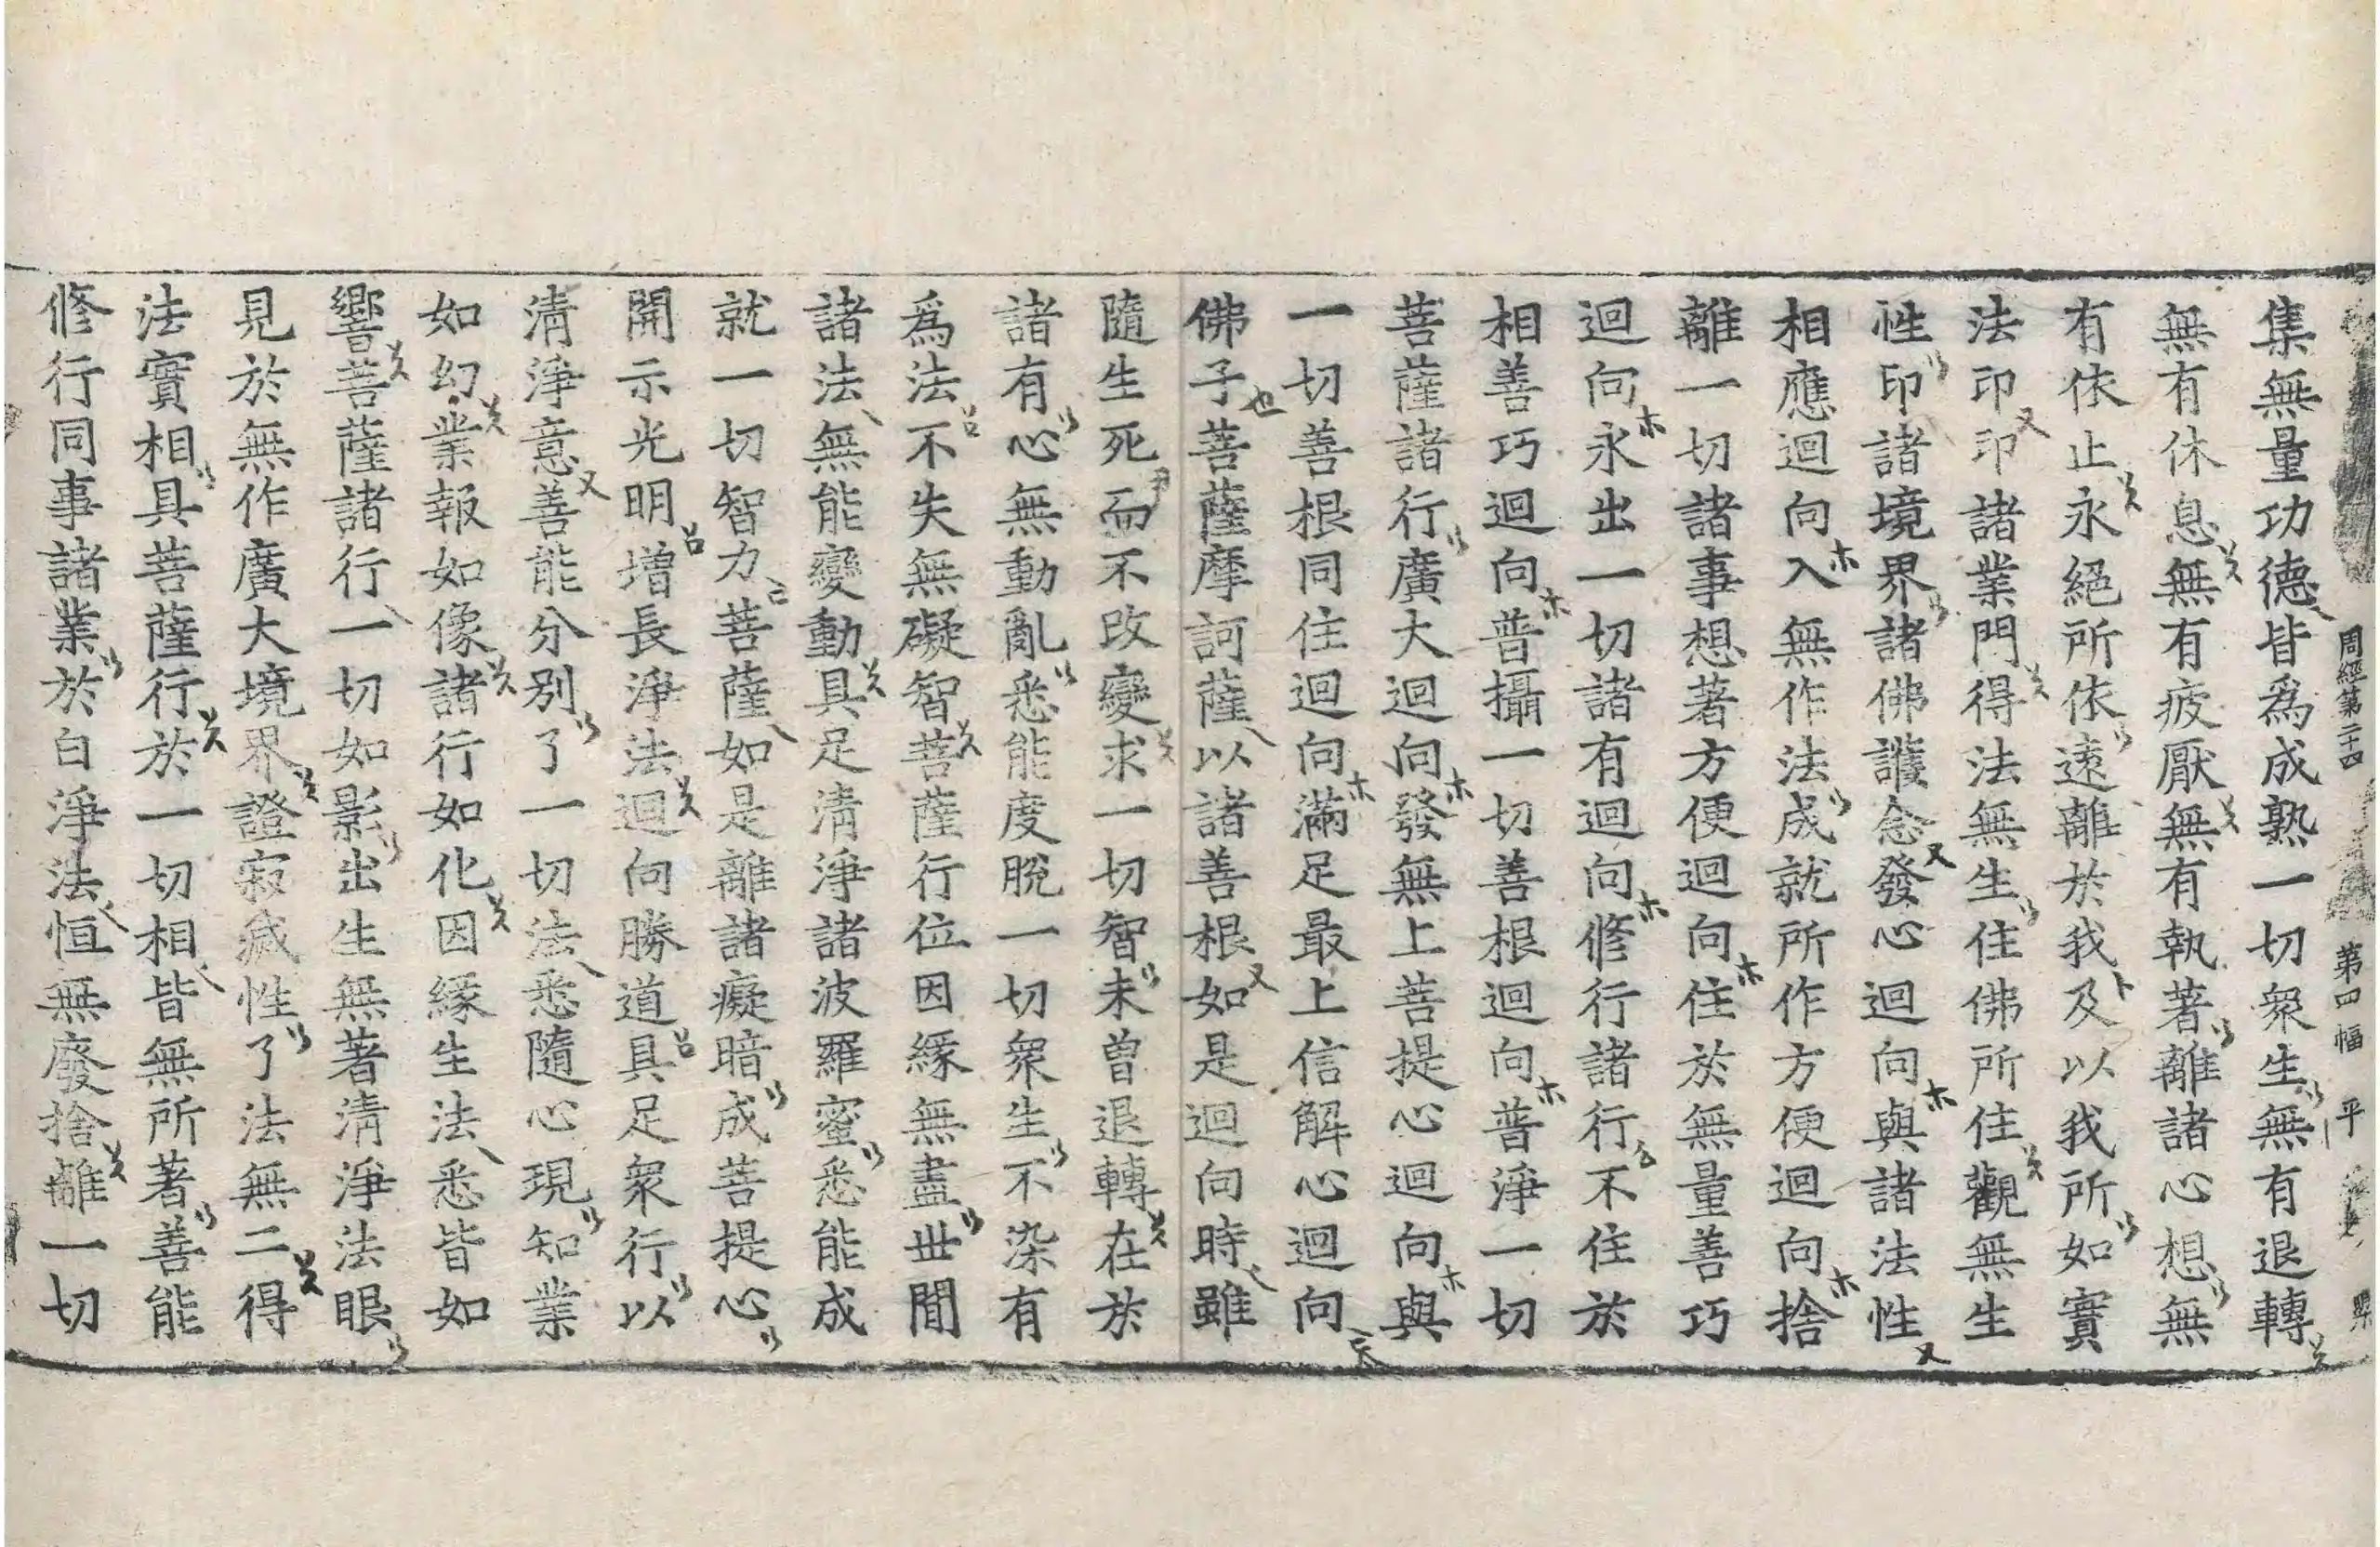 周經第二十四 第四幅 平
集無量功德皆爲成熟一切衆生無有退轉
無有休息無有疲厭無有執著離諸心想無
有依止永絕所依遠離於我及以我所如實
法印印諸業門得法無生住佛所住觀無生
性印諸境界諸佛護念發心迴向與諸法性
相應迴向入無作法成就所作方便迴向捨
離一切諸事想著方便迴向住於無量善巧
迴向永出一切諸有迴向修行諸行不住於
相善巧迴向普攝一切善根迴向普淨一切
菩薩諸行廣大迴向發無上菩提心迴向與
一切善根同住迴向滿足最上信解心迴向
佛子菩薩摩訶薩以諸善根如是迴向時雖
隨生死而不改變求一切智未曾退轉在於
諸有心無動亂悉能度脫一切衆生不染有
爲法不失無礙智菩薩行位因緣無盡世間
諸法無能變動具足清淨諸波羅蜜悉能成
就一切智力菩薩如是離諸癡暗成菩提心
開示光明增長淨法迴向勝道具足衆行以
清淨意善能分別了一切法悉隨心現知業
如幻業報如像諸行如化因緣生法悉皆如
響菩薩諸行一切如影出生無著清淨法眼
見於無作廣大境界證寂滅性了法無二得
法實相具菩薩行於一切相皆無所著善能
修行同事諸業於白淨法恒無廢捨離一切